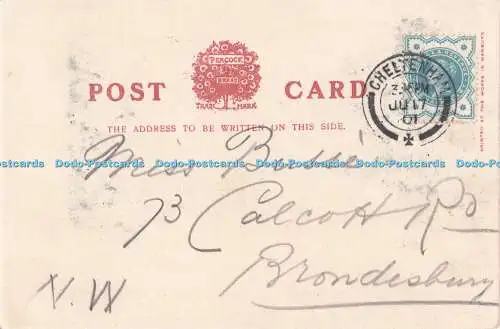 PEACOCK
BRAND
TRADE MARK
POST CARD
THE ADDRESS TO BE WRITTEN ON THIS SIDE.
CHELTENHAM
JU 17
01
PRINTED AT THE WORKS IN
Dodo-Postcards Dodo-Postcards Dodo-Postcards Dodo-Postcards Dodo-Postcards
Miss
73 Calcott Rd
Brondesbury
N.W